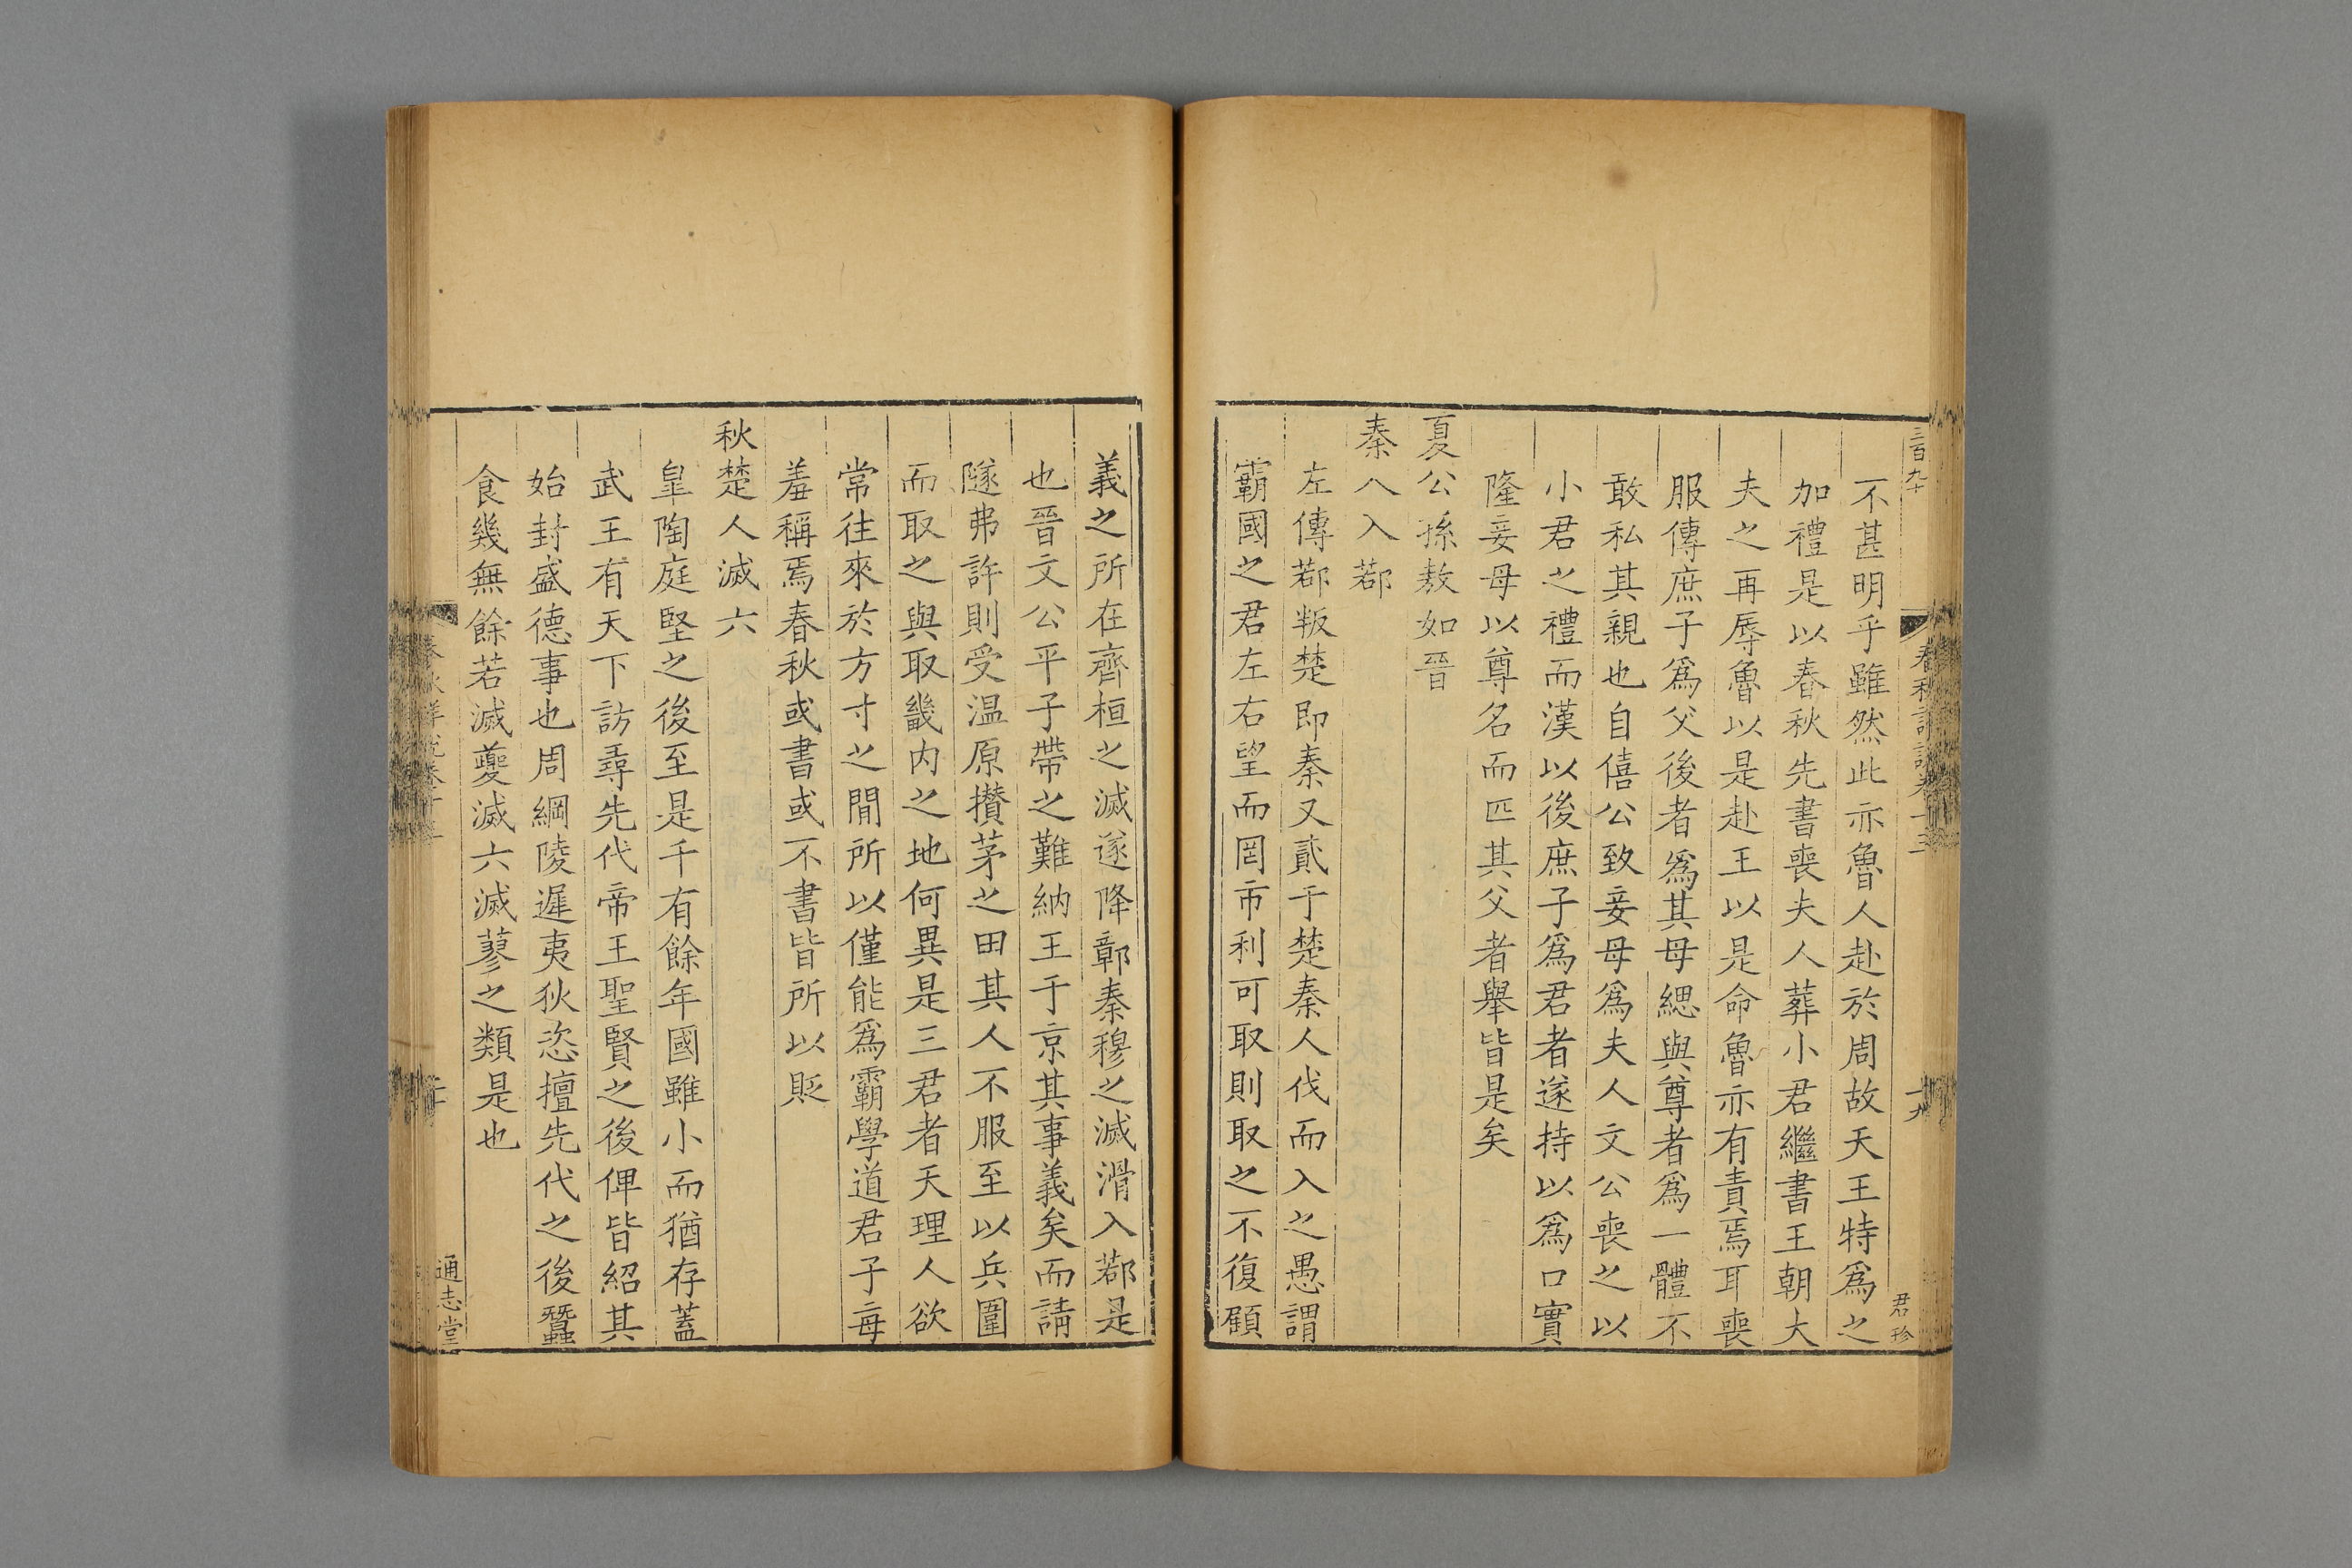 三百九十
君珍
不甚明乎雖然此亦魯人赴於周故天王特爲之
加禮是以春秋先書喪夫人葬小君繼書王朝大
夫之再辱魯以是赴王以是命魯亦有責焉耳喪
服傳庶子爲父後者爲其母緦與尊者爲一體不
敢私其親也自僖公致妾母爲夫人文公喪之以
小君之禮而漢以後庶子爲君者遂持以爲口實
隆妾母以尊名而匹其父者舉皆是矣
夏公孫敖如晉
秦人入鄀
左傳鄀叛楚即秦又貳于楚秦人伐而入之愚謂
霸國之君左右望而罔市利可取則取之不復顧
義之所在齊桓之滅遂降鄣秦穆之滅滑入鄀是
也晉文公平子帶之難納王于京其事義矣而請
隧弗許則受温原攅茅之田其人不服至以兵圍
而取之與取畿内之地何異是三君者天理人欲
常往來於方寸之間所以僅能爲霸學道君子每
羞稱焉春秋或書或不書皆所以貶
秋楚人滅六
皐陶庭堅之後至是千有餘年國雖小而猶存蓋
武王有天下訪尋先代帝王聖賢之後俾皆紹其
始封盛德事也周綱陵遲夷狄恣擅先代之後蠶
食幾無餘若滅夔滅六滅蓼之類是也
通志堂